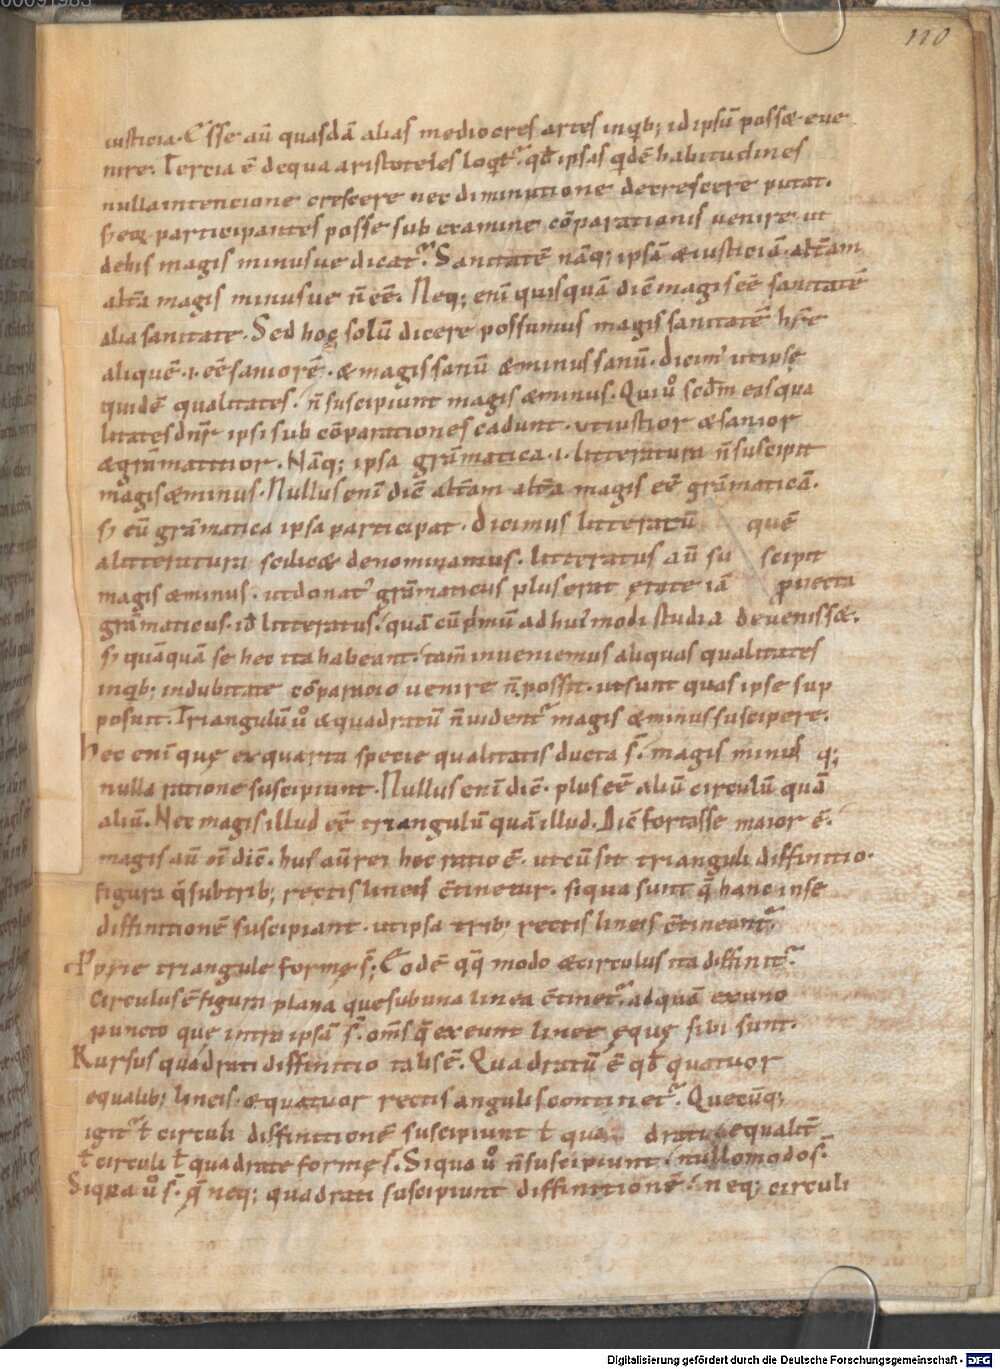 00091983
110
iusticia. Esse aū quasdā alias mediocres artes inqb; id ipsū possæ eue
nire. Tercia ē de qua aristoteles loqt̄. qđ ipsas qdē habitudines
nulla intencione crescere nec diminutione decrescere putat.
sȝ eas participantes posse sub examine cōparationis uenire. ut
dehis magis minusue dicat̄. Sanitatē nāq; ipsā & iusticiā. altam
alt̄a magis minusue ñ eē. Neq; eni quisquā diē magis eē sanitatē
alia sanitate. Sed hoc solū dicere possumus magis sanitatē hr̄e
aliquē .i. eē saniorē. & magis sanū & minus sanū. dicim̄ ut ipsę
quidē qualitates. ñ suscipiunt magis & minus. Qui ů scđm eas qua
litates dnr̄ ipsi sub cōparationes cadunt. ut iustior & sanior
& grāmatitior. Nāq; ipsa grāmatica .i. litteratura ñ suscipit
magis & minus. Nullus eni diē altam alt̄a magis eē grāmaticā.
sȝ cū grāmatica ipsa participat. dicimus litteratū quē
a litteratura scilicæ denominamus. litteratus aū su scipit
magis & minus. ut donat' grāmaticus plus erat ętate iā puecta
grāmaticus. id litteratus. quā cū pmū ad hui'modi studia deuenissæ.
sȝ quāquā se hec ita habeant. tam̄ inueniemus aliquas qualitates
inqb; indubitate cōparatio uenire ñ possit. ut sunt quas ipse sup
posuit. Triangulū ů & quadratū ñ uident̄ magis & minus suscipere.
Hec eni quę ex quarta specie qualitatis ducta s̄. magis minus q;
nulla ratione suscipiunt. Nullus eni diē. plus eē aliū circulū quā
aliū. Nec magis illud eē triangulū quā illud. Diē fortasse maior ē.
magis aū ñ diē. hui' aū rei hec ratio ē. ut cū sit trianguli diffinitio.
figura q̄ sub trib; rectis lineis c̄tinetur. siqua sunt q̄ hanc in se
diffinitionē suscipiant. ut ipsa trib; rectis lineis c̄tineant̄.
Pprie triangule formę s̄; Eodē q̄q̄ modo & circulus ita diffinit̄.
Circulus ē figura plana que sub una linea c̄tinet̄. ad quam ex uno
puncto que intra ipsā s̄. om̄s q̄ exeunt lineę ęquę sibi sunt.
Rursus quadrati diffinitio talis ē. Quadratū ē qđ quatuor
equalib; lineis. & quatuor rectis angulis continet̄. Quecūq;
igit̄ ł circuli diffinitionē suscipiunt ł qua drati æqualit̄
ł circuli ł quadrate formę s̄. Siqua ů ñ suscipiunt. nullo modo s̄.
Siqua ů s̄. q̄ neq; quadrati suscipiunt diffinitionē. neq; circuli
Digitalisierung gefördert durch die Deutsche Forschungsgemeinschaft - DFG